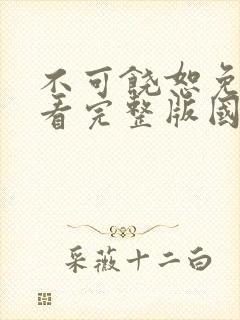 不可饶恕免
看完整版国
采薇十二白